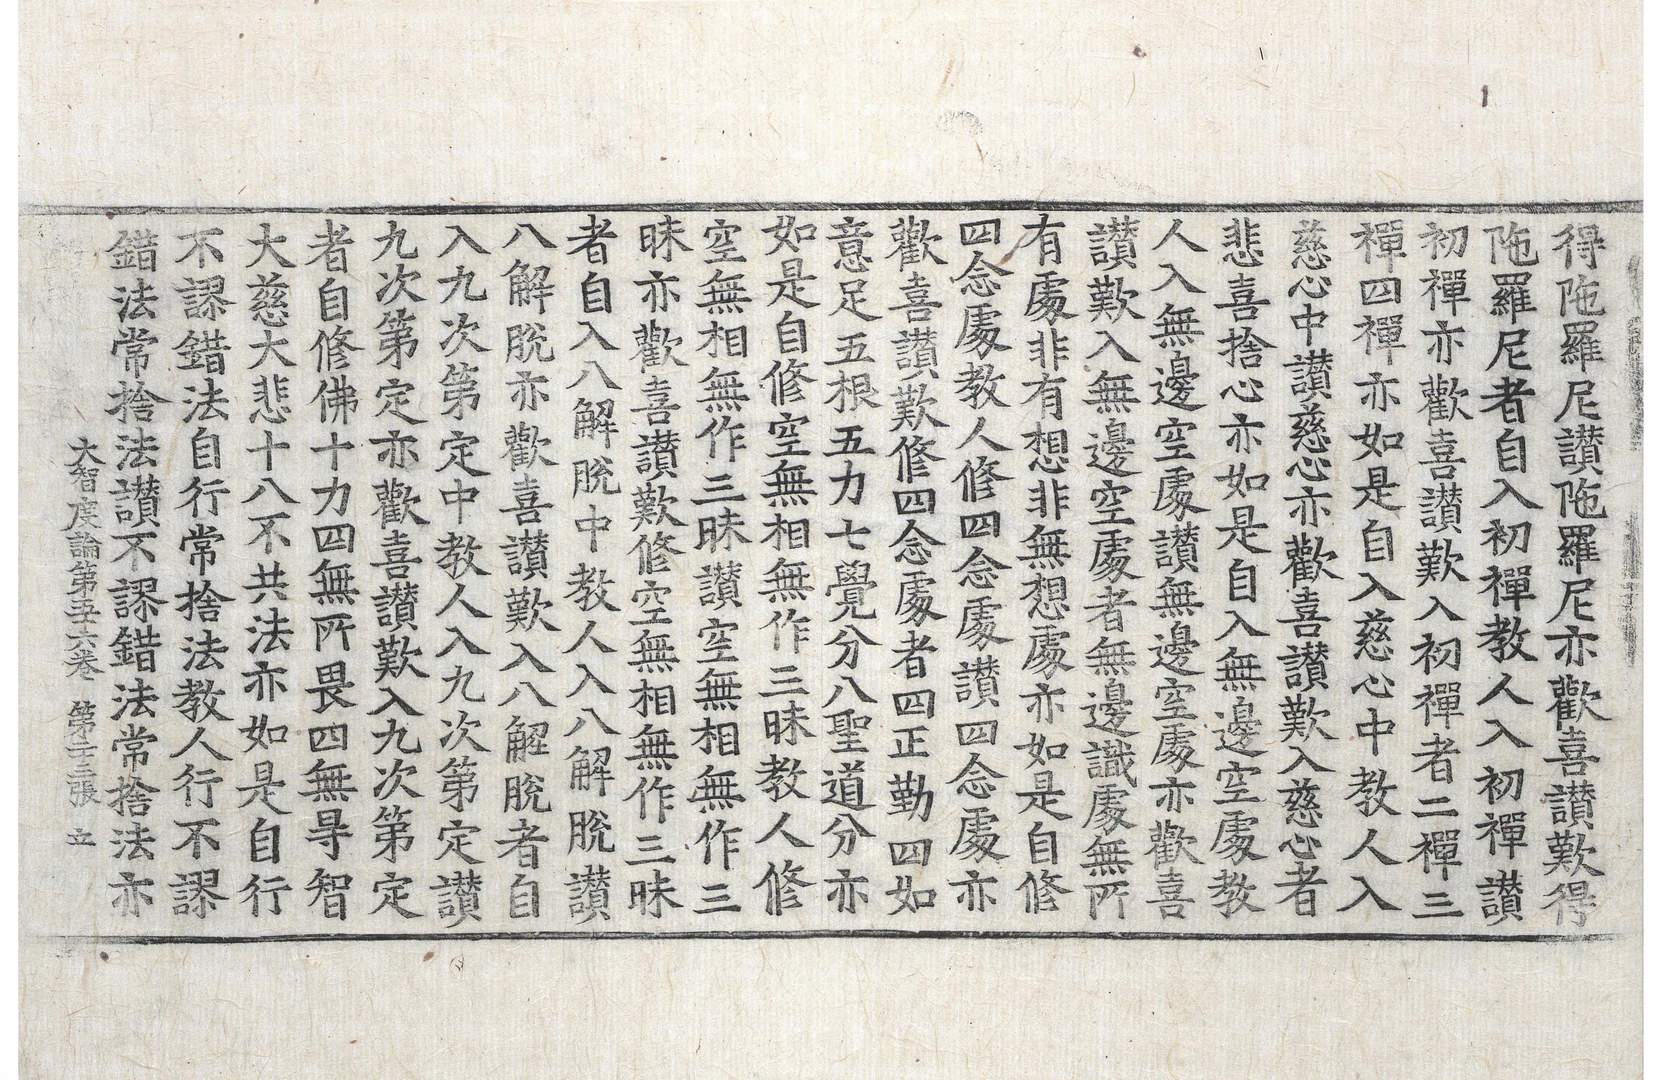 得陁羅尼讃陁羅尼亦歡喜讃歎得
陁羅尼者自入初禪教人入初禪讃
初禪亦歡喜讃歎入初禪者二禪三
禪四禪亦如是自入慈心中教人入
慈心中讃慈心亦歡喜讃歎入慈心者
悲喜捨心亦如是自入無邊空處教
人入無邊空處讃無邊空處亦歡喜
讃歎入無邊空處者無邊識處無所
有處非有想非無想處亦如是自修
四念處教人修四念處讃四念處亦
歡喜讃歎修四念處者四正勤四如
意足五根五力七覺分八聖道分亦
如是自修空無相無作三昧教人修
空無相無作三昧讃空無相無作三
昧亦歡喜讃歎修空無相無作三昧
者自入八解脫中教人入八解脫讃
八解脫亦歡喜讃歎入八解脫者自
入九次第定中教人入九次第定讃
九次第定亦歡喜讃歎入九次第定
者自修佛十力四無所畏四無㝵智
大慈大悲十八不共法亦如是自行
不謬錯法自行常捨法教人行不謬
錯法常捨法讃不謬錯法常捨法亦
大智度論第五十六卷 第二十三張 立